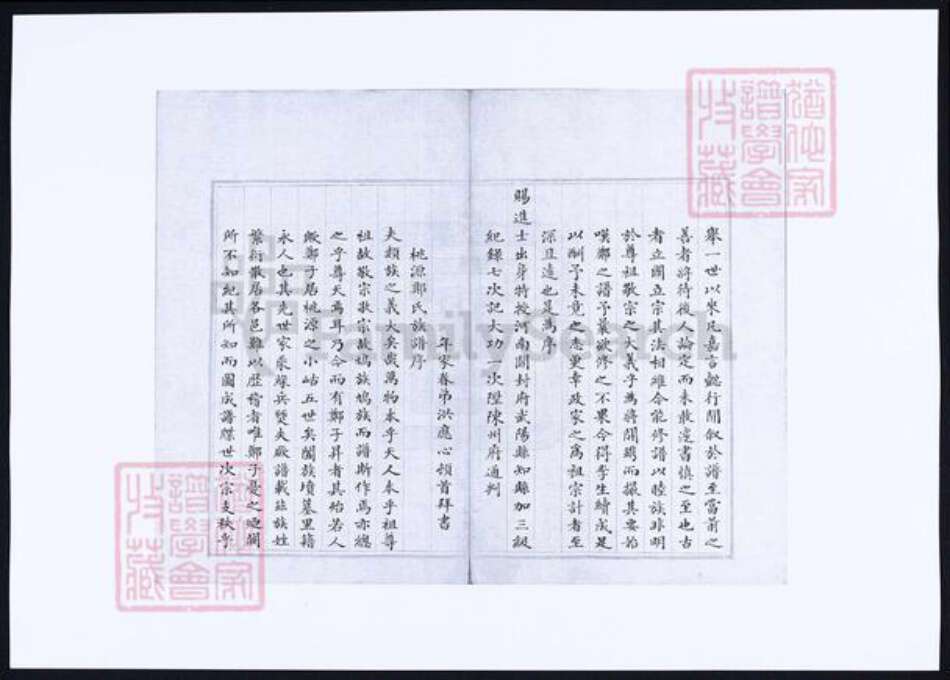 舉一世以來凡嘉言懿行間叙於譜至當前之
善者將待後人論定而未敢漫書慎之至也古
者立國立宗其法相維今能修譜以睦族非明
於尊祖敬宗之大義乎為將開雕而撮其要若
嘆鄭之譜予羕欲修之不果今得李生續成是
以酬予未竟之志更幸政家之為祖宗計者至
深且遠也是為序
賜進士出身特授河南開封府武陽縣知縣加三級
紀錄七次記大功一次陞陳州府通判
年家眷弟洪應心頓首拜書
桃源鄭氏族譜序
夫類族之義大矣哉萬物本乎天人本乎祖尊
祖故敬宗敬宗故鳩族鳩族而譜斯作焉亦總
之乎尊天焉耳乃今而有鄭子昇者其殆若人
歟鄭子居桃源之小岵五世矣闔族墳墓里籍
永人也其先世家
兵燹夫厥譜載茲族姓
繁衍散居各邑難以歷稽者唯鄭子憂之迺闕
所不知紀其所知而圖成譜牒世次宗支秩乎
譜學會
收藏
譜學會
收藏
FamilySearch